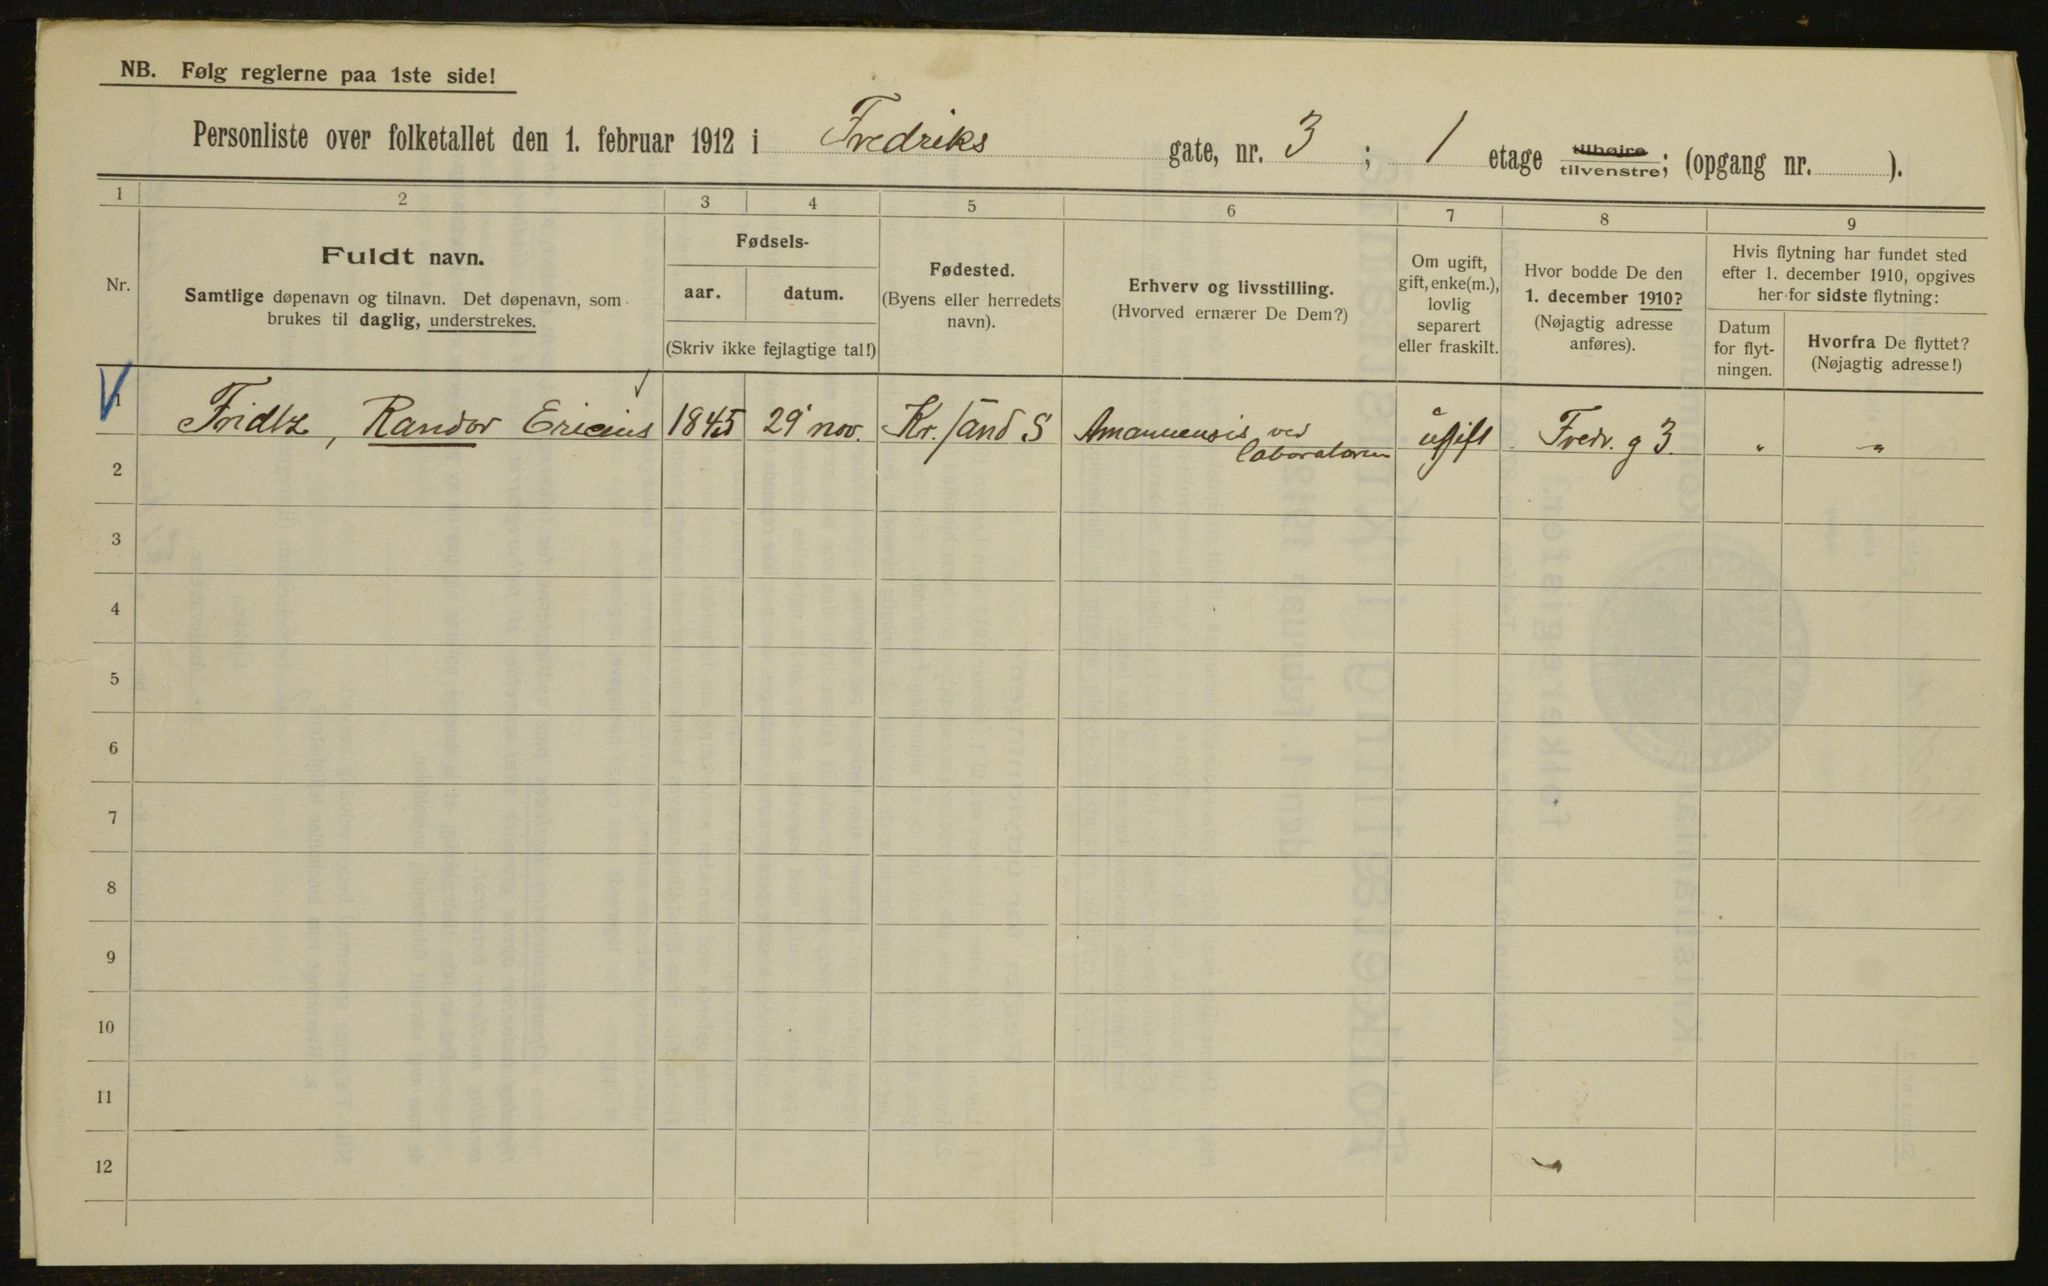 NB. Følg reglerne paa 1ste side!
Personliste over folketallet den 1. februar 1912 i Fredriks gate, nr. 3 ; 1 etage tilhøjre tilvenstre; (opgang nr. ).
1 2 3 4 5 6 7 8 9
Nr.
Fuldt navn.
Samtlige døpenavn og tilnavn. Det døpenavn, som
brukes til daglig, understrekes.
Fødsels-
aar. datum.
(Skriv ikke fejlagtige tal!)
Fødested.
(Byens eller herredets
navn).
Erhverv og livsstilling.
(Hvorved ernærer De Dem?)
Om ugift,
gift, enke(m.),
lovlig
separert
eller fraskilt.
Hvor bodde De den
1. december 1910?
(Nøjagtig adresse
anføres).
Hvis flytning har fundet sted
efter 1. december 1910, opgives
her for sidste flytning:
Datum
for flyt-
ningen.
Hvorfra De flyttet?
(Nøjagtig adresse!)
1 Fridtz, Randor Ericius 1845 29 nov. Kr.sand S Amanuensis ved ugift Fredr. g 3. " "
2
3
4
5
6
7
8
9
10
11
12